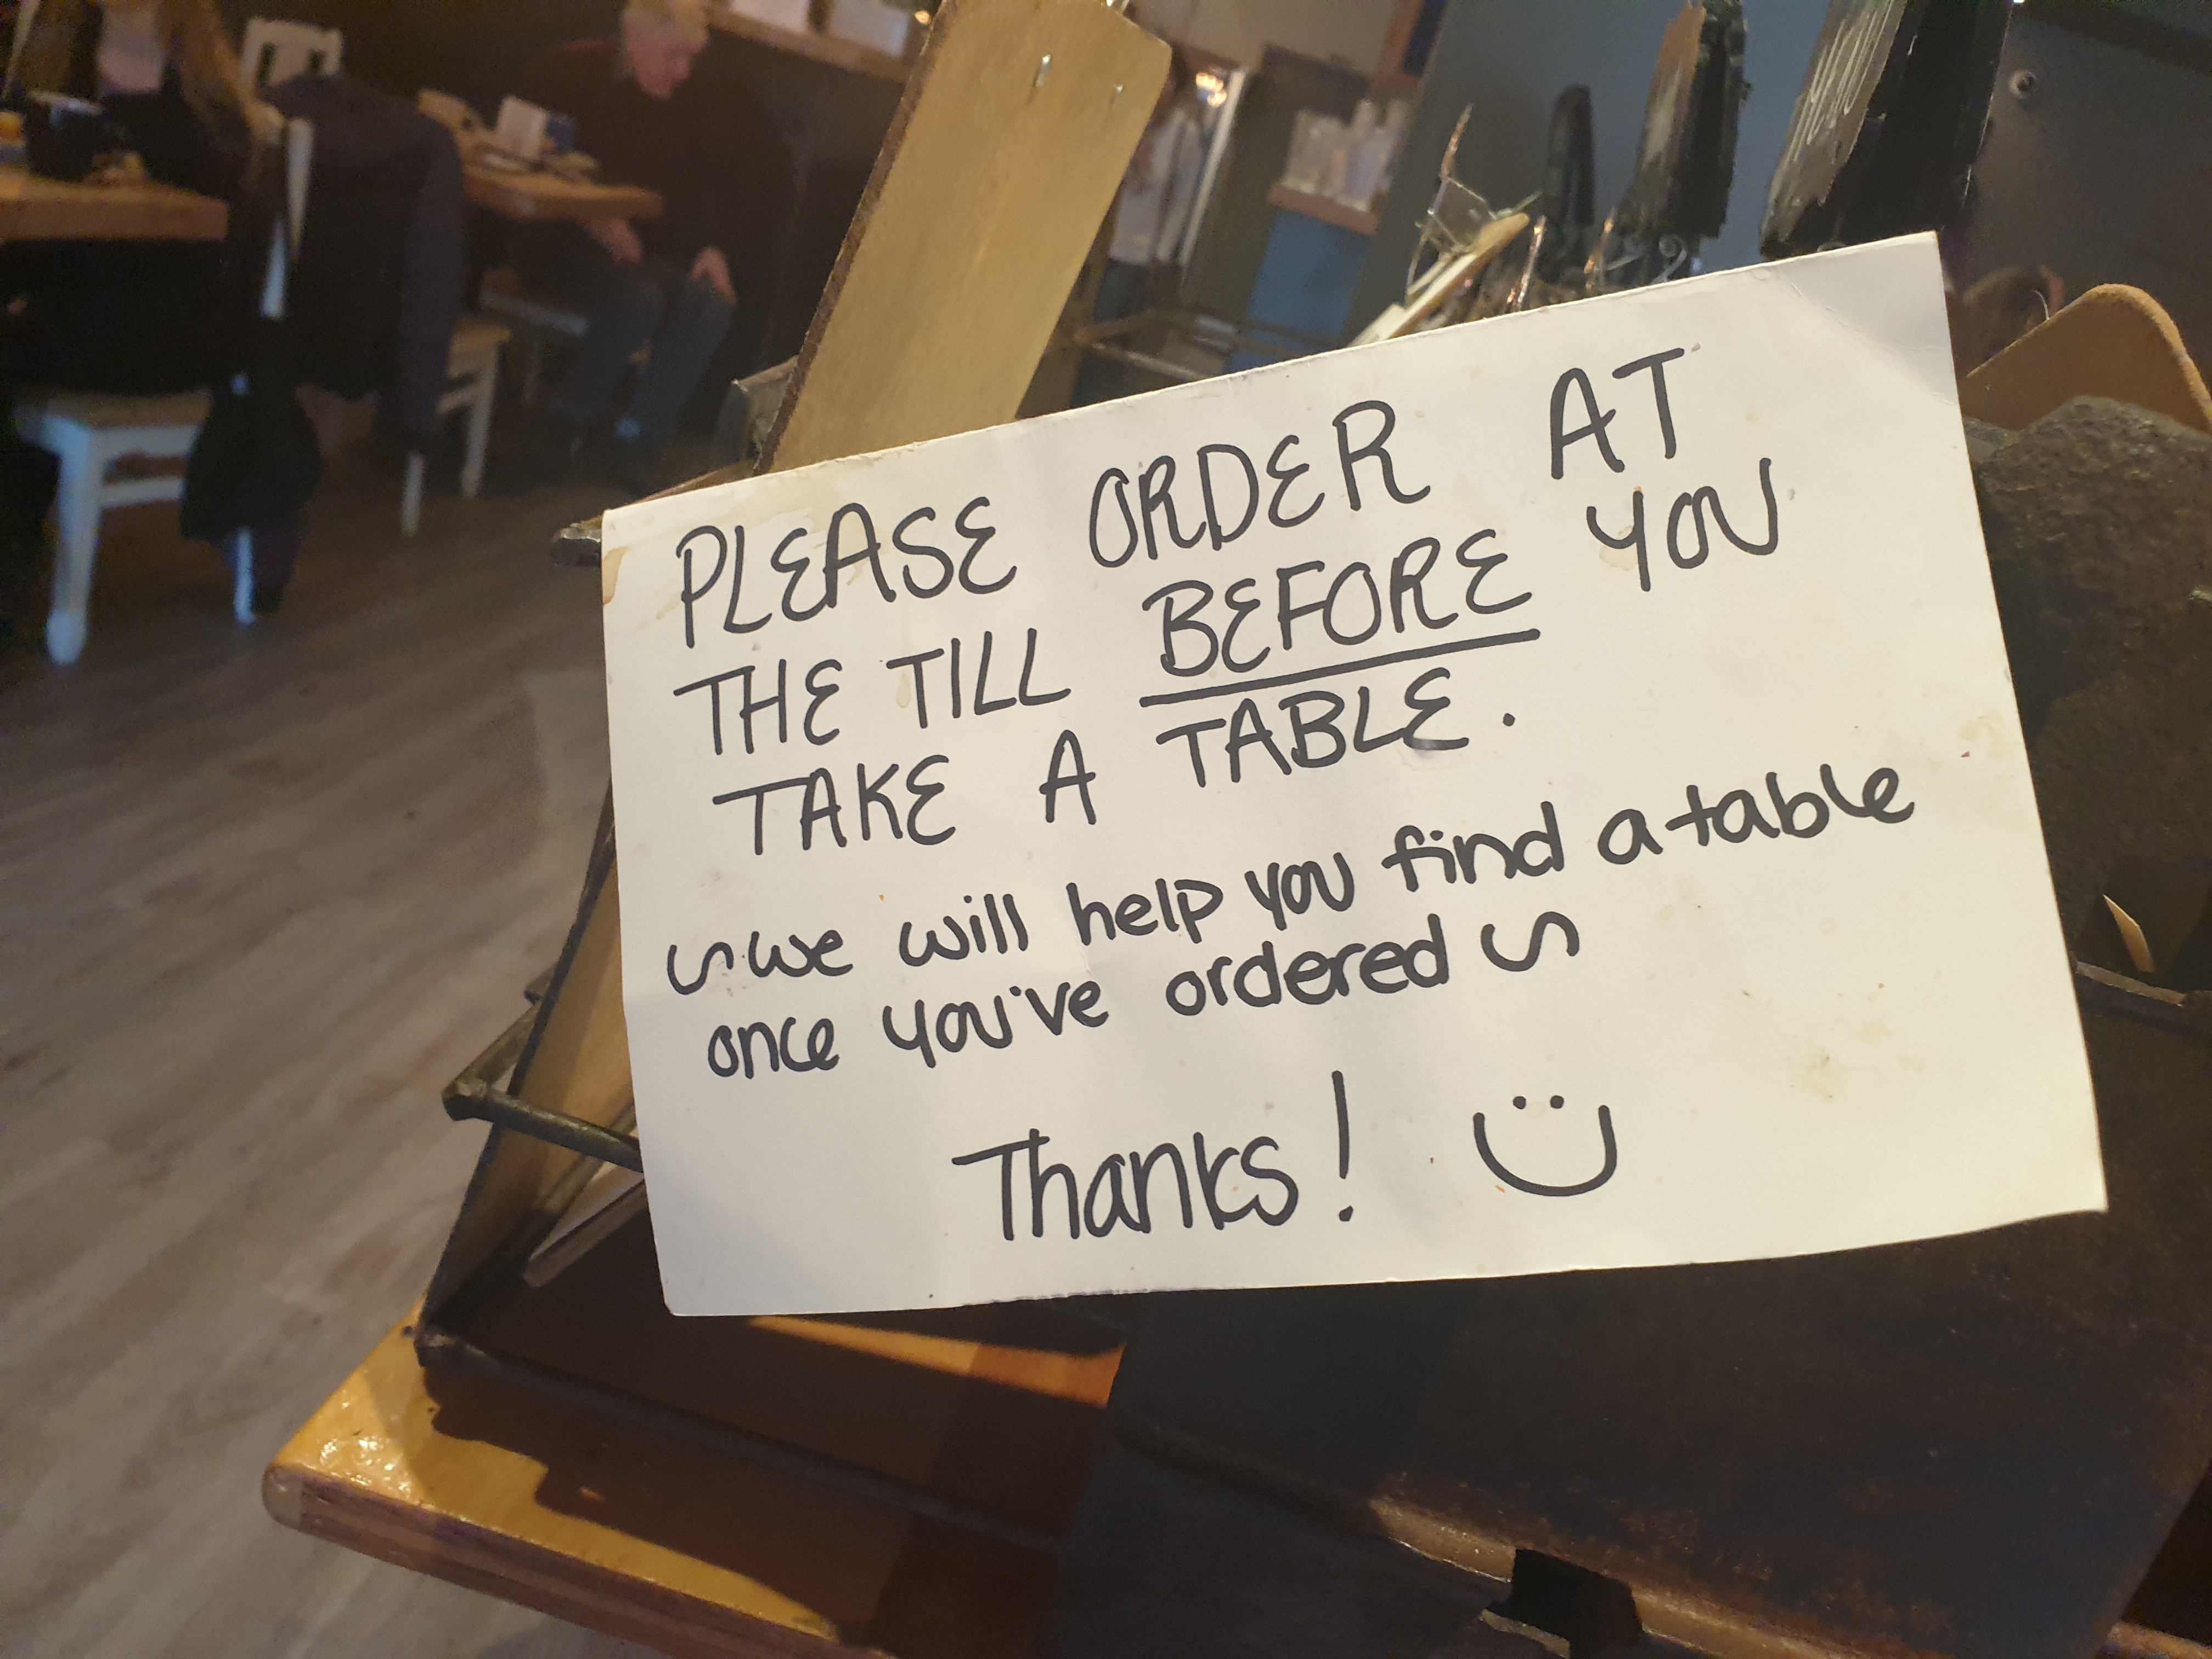 PLEASE ORDER AT
THE TILL BEFORE YOU
TAKE A TABLE.
~we will help you find a table
once you've ordered ~
Thanks! Ü